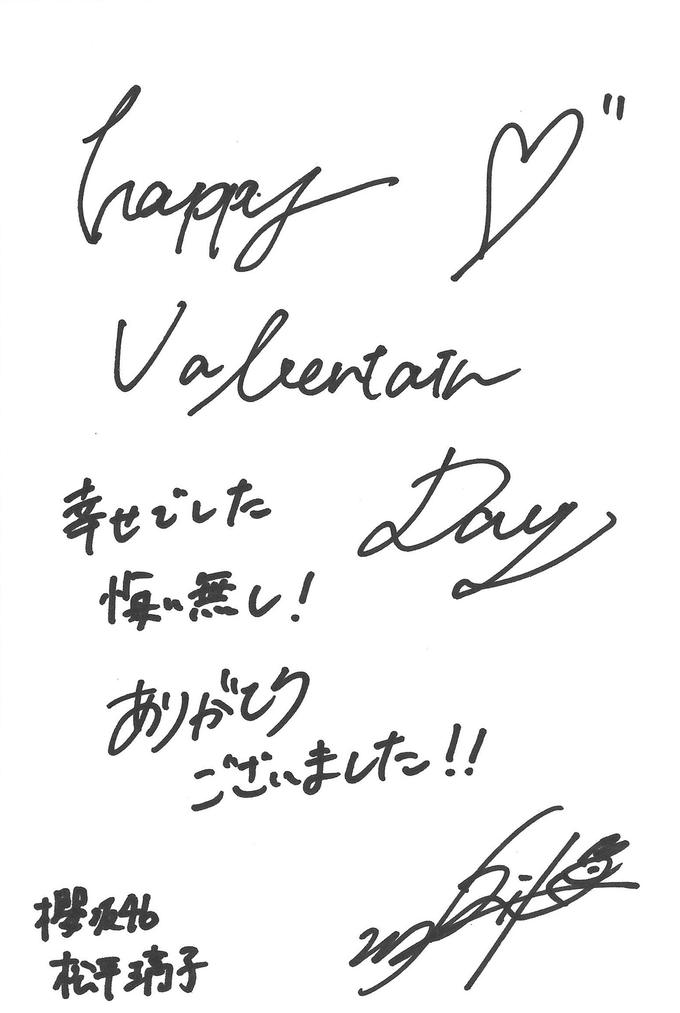 happy
Valentain
Day
幸せでした
悔い無し！
ありがとう
ございました！！
櫻坂46
松平璃子